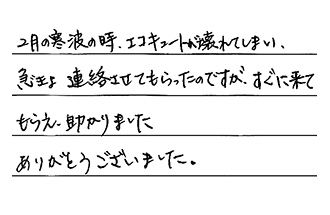 2月の寒波の時、エコキュートが壊れてしまい、
急きょ連絡させてもらったのですが、すぐに来て
もらえ、助かりました
ありがとうございました。